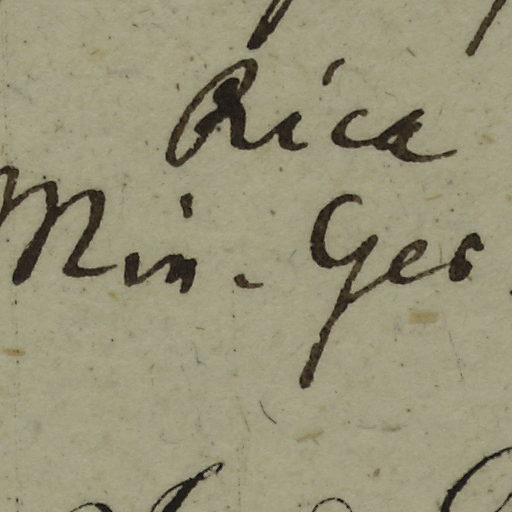 Rica
Min. Ges